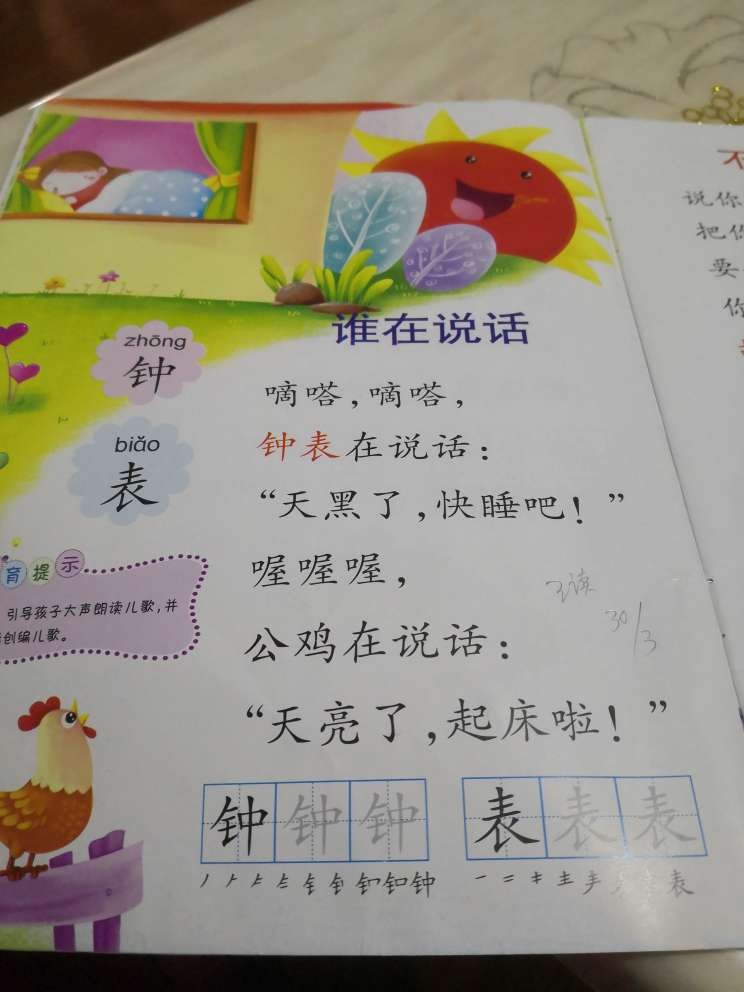 谁在说话
zhōng
钟
biǎo
表
嘀嗒,嘀嗒,
钟表在说话:
“天黑了,快睡吧!”
喔喔喔,
公鸡在说话:
“天亮了,起床啦!”
育提示
引导孩子大声朗读儿歌,并
创编儿歌。
读
30/3
钟 钟 钟
表 表 表
不
说你
把你
要
你